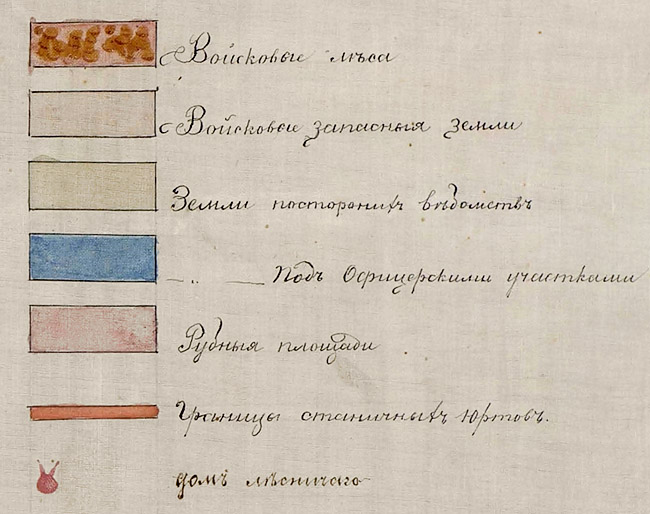 Войсковые лѣса
Войсковые запасныя земли
Земли посторонихъ вѣдомствъ
— „ — Подъ Офицерскими участками
Рубныя площади
Границы станичныхъ юртовъ.
домъ лѣсничаго